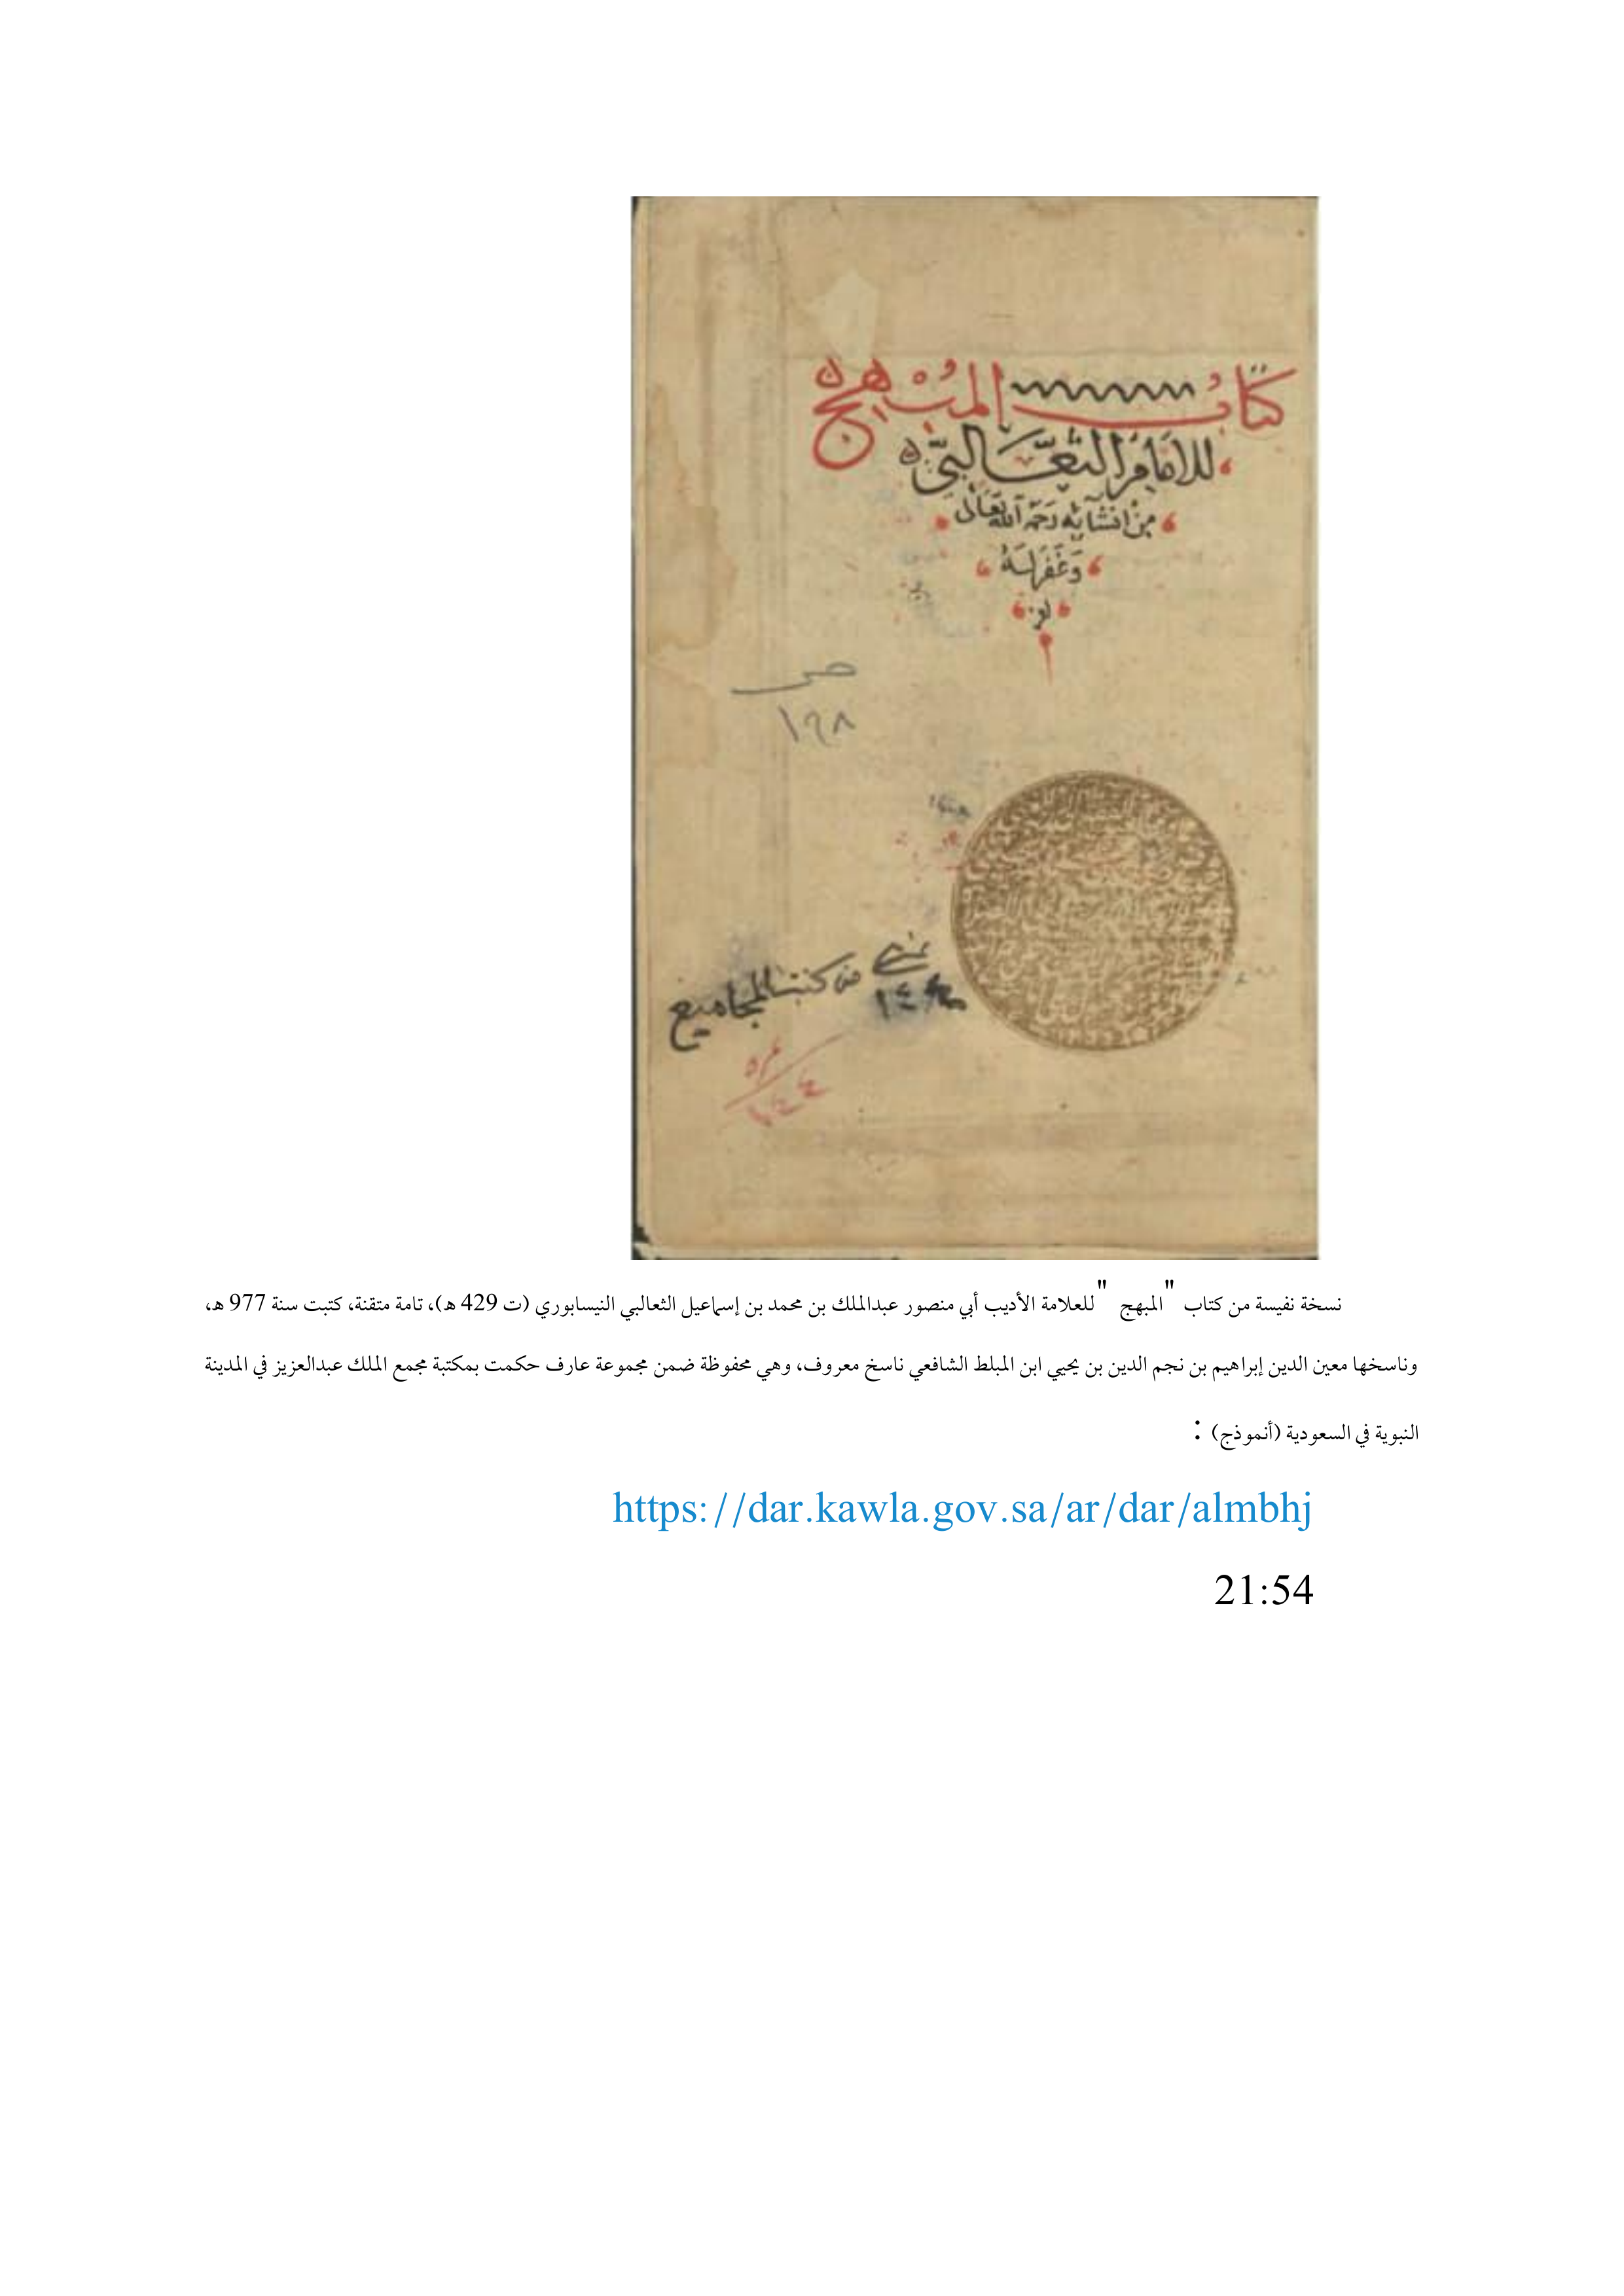 كتاب المبهج
للامام الثعالبي
من انشائه رحمه الله تعالى
وغفر له
ص
١٩٨
من كتب المجاميع
١٤٤
نسخة نفيسة من كتاب "المبهج" للعلامة الأديب أبي منصور عبدالملك بن محمد بن إسماعيل الثعالبي النيسابوري (ت 429 هـ)، تامة متقنة، كتبت سنة 977 هـ،
وناسخها معين الدين إبراهيم بن نجم الدين بن يحيي ابن المبلط الشافعي ناسخ معروف، وهي محفوظة ضمن مجموعة عارف حكمت بمكتبة مجمع الملك عبدالعزيز في المدينة
النبوية في السعودية (أنموذج) :
https://dar.kawla.gov.sa/ar/dar/almbhj
21:54